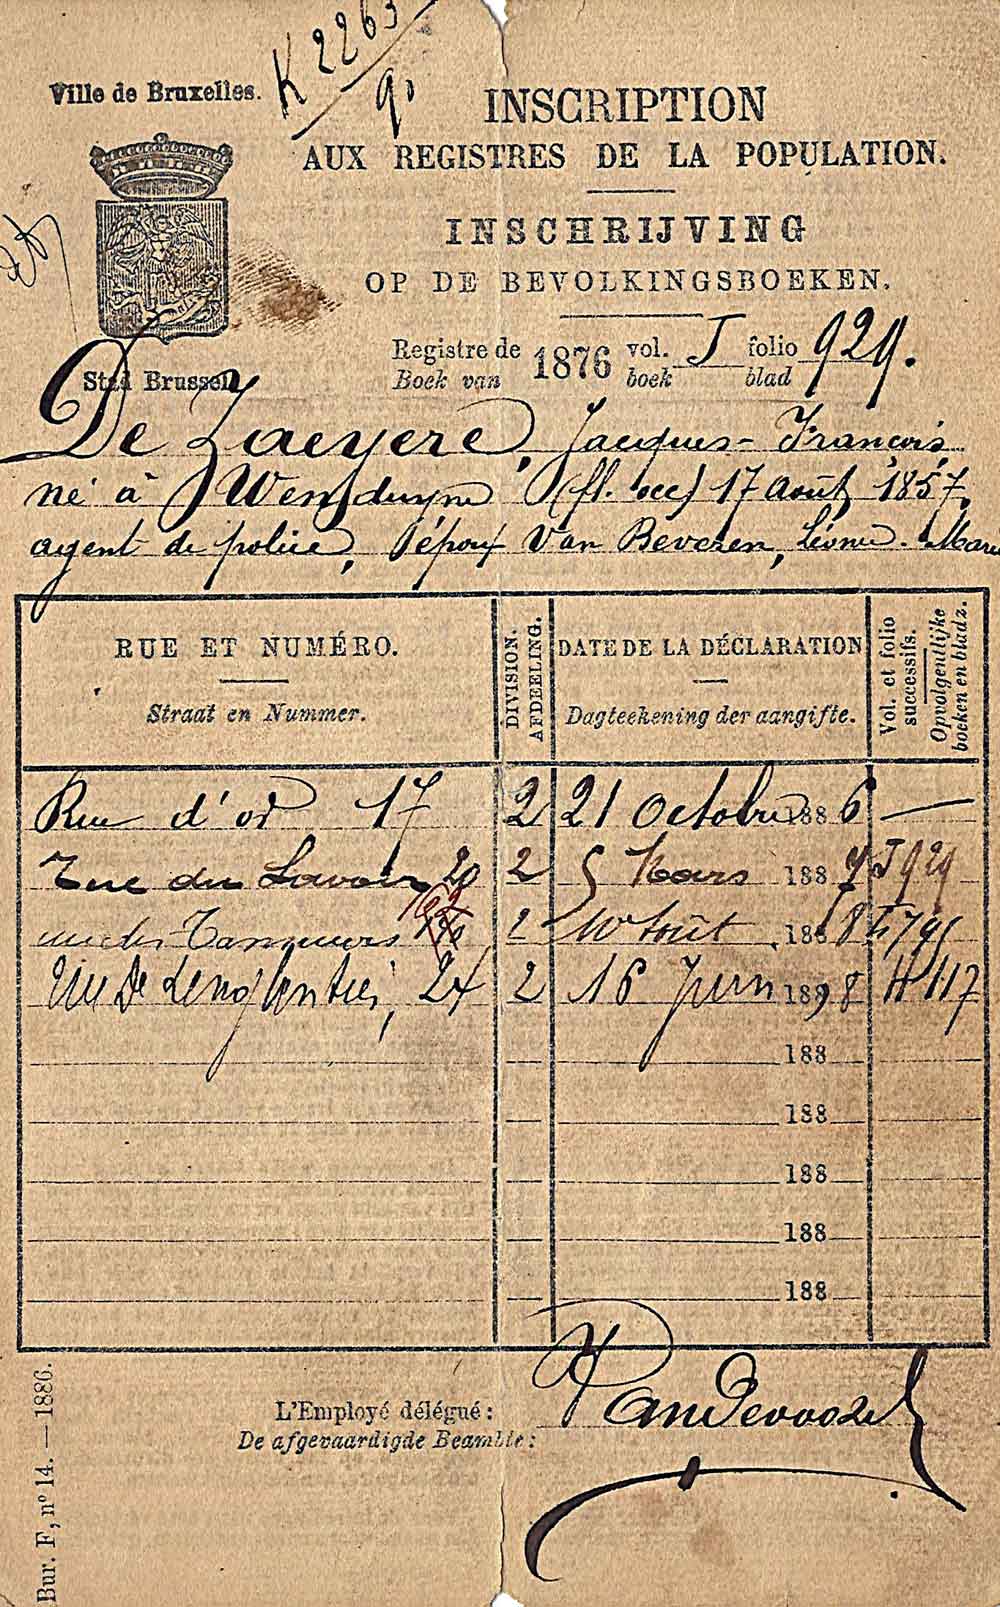 K 2263
90
Ville de Bruxelles.
INSCRIPTION
AUX REGISTRES DE LA POPULATION.
INSCHRIJVING
OP DE BEVOLKINGSBOEKEN.
Stad Brussel.
Registre de 1876 vol. I folio 929.
Boek van boek blad
De Zaeyere, Jacques-François,
né à Wenduyne (fl. occ) 17 août 1857,
agent de police, époux Van Beveren, Léonie-Marie
RUE ET NUMÉRO.
Straat en Nummer.
DIVISION.
AFDEELING.
DATE DE LA DÉCLARATION
Dagteekening der aangifte.
Vol. et folio
successifs.
Opvolgentlijke
boeken en bladz.
Rue d'or 17 2 21 Octobre 1886 —
Rue du Lavoir 20 2 5 Mars 1887 I 929
rue des Tanneurs 162 2 Août 188
24 2 16 Juin 1898 H 117
188
188
188
188
188
L'Employé délégué :
De afgevaardigde Beambte :
Bur. F, nº 14. — 1886.